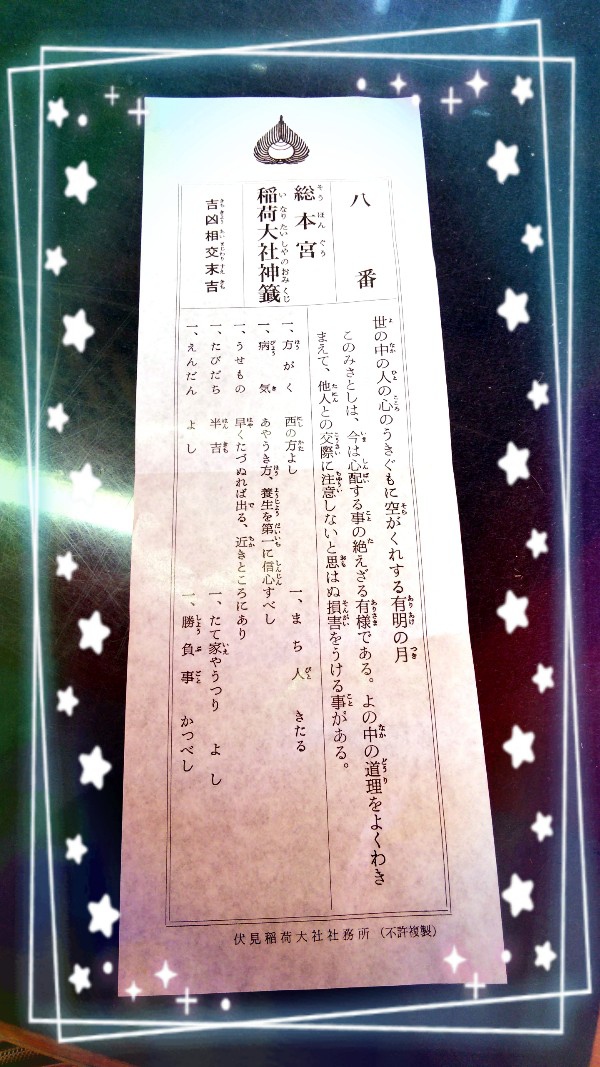 八番
総本宮
稲荷大社神籤
吉凶相交末吉
世の中の人の心のうきぐもに空がくれする有明の月
このみさとしは、今は心配する事の絶えざる有様である。よの中の道理をよくわき
まえて、他人との交際に注意しないと思はぬ損害をうける事がある。
一、方がく 西の方よし
一、まち人 きたる
一、病気 あやうき方、養生を第一に信心すべし
一、うせもの 早くたづぬれば出る、近きところにあり
一、たびだち 半吉
一、たて家やうつり よし
一、えんだん よし
一、勝負事 かつべし
伏見稲荷大社社務所（不許複製）